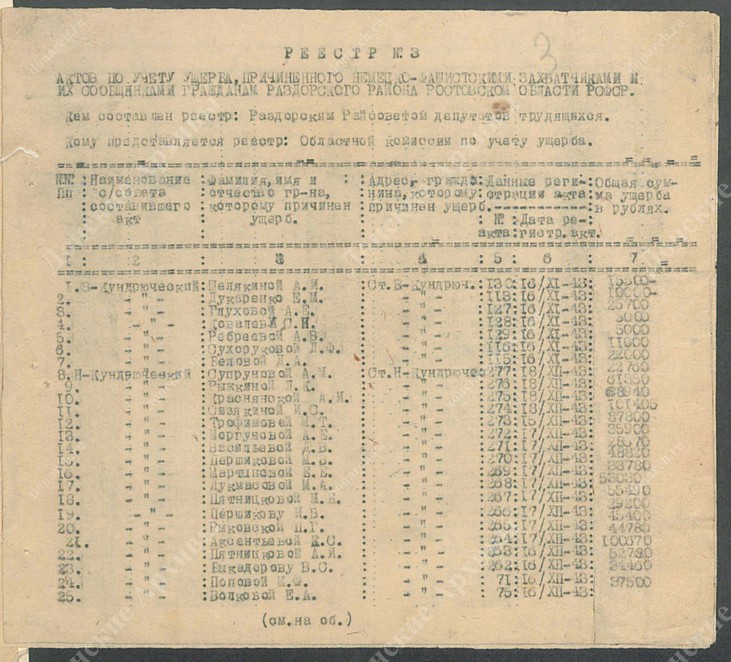 3
РЕЕСТР №.3
АКТОВ ПО УЧЕТУ УЩЕРБА, ПРИЧИНЕННОГО НЕМЕЦКО-ФАШИСТСКИМИ ЗАХВАТЧИКАМИ И
ИХ СООБЩНИКАМИ ГРАЖДАНАМ РАЗДОРСКОГО РАЙОНА РОСТОВСКОЙ ОБЛАСТИ РСФСР.
Кем составлен реестр: Раздорским Райсоветом депутатов трудящихся.
Кому представляется реестр: Областной комиссии по учету ущерба.
№№ : Наименование : Фамилия, имя и : Адрес граждо- : Данные реги- : Общая сум-
Пп : с/совета : отчество гр-на, : нина, которому : страции акта : ма ущерба
составившего : которому причинен : причинен ущерб. : в рублях.
акт : ущерб. : № : Дата ре-
акта : гистр. акт.
I : 2 : 3 : 4 : 5 : 6 : 7
I. В-Кундрюческий : Шелякиной А.И. : Ст. В-Кундрюч. : 130 : 16/XI-43: 15500-
2. - " - : Дукаренко Е.М. - " - : 113 : 16/XI-43: 10000-
3. - " - : Глуховой А.Е. - " - : 127 : 16/XI-43: 25700
4. - " - : Ковалевй С.Н. - " - : 128 : 16/XI-43: 5000
5. - " - : Ребраевой А.В. - " - : 129 : 16/XI-43: 5000
6. - " - : Сухоруковой Д.Ф. - " - : 116 : 16/XI-43: 11000
7. - " - : Беловой Л.А. - " - : 115 : 16/XI-43: 22000
8. Н-Кундрюческий : Супруновой А.М. : Ст. Н-Кундрючес : 277 : 18/XII-43: 22760
9. - " - : Рыжкиной Л.К. - " - : 276 : 18/XII-43: 61550
10. - " - : Краснянской А.И. - " - : 275 : 18/XII-43:
11. - " - : Сизякиной И.С. - " - : 274 : 18/XII-43: 101405
12. - " - : Трофимовей М.Т. - " - : 273 : 15/XII-43: 37300
13. - " - : Моргуновой А.Е. - " - : 272 : 17/XII-43: 35900
14. - " - : Васильевой Д.В. - " - : 271 : 17/XII-43:
15. - " - : Першиковой М.В. - " - : 270 : 17/XII-43: 48820
16. - " - : Мартыновой Е.В. - " - : 269 : 17/XII-43: 33780
17. - " - : Лукмасовой М.А. - " - : 268 : 17/XII-43: 53030
18. - " - : Пятницковой М.Н. - " - : 267 : 17/XII-43: 55490
19. - " - : Першикову И.В. - " - : 266 : 17/XII-43: 29200
20. - " - : Рыковской П.Г. - " - : 265 : 17/XII-43: 45405
21. - " - : Аксентьевой К.С. - " - : 264 : 17/XII-43: 44780
22. - " - : Пятницковой А.И. - " - : 263 : 16/XII-43: 100670
23. - " - : Выкадорову В.С. - " - : 262 : 16/XII-43: 52780
24. - " - : Поповой М.Ф. - " - : 71 : 16/XII-43: 34460
25. - " - : Волковой Е.А. - " - : 75 : 16/XII-43: 37500
(см. на об.)